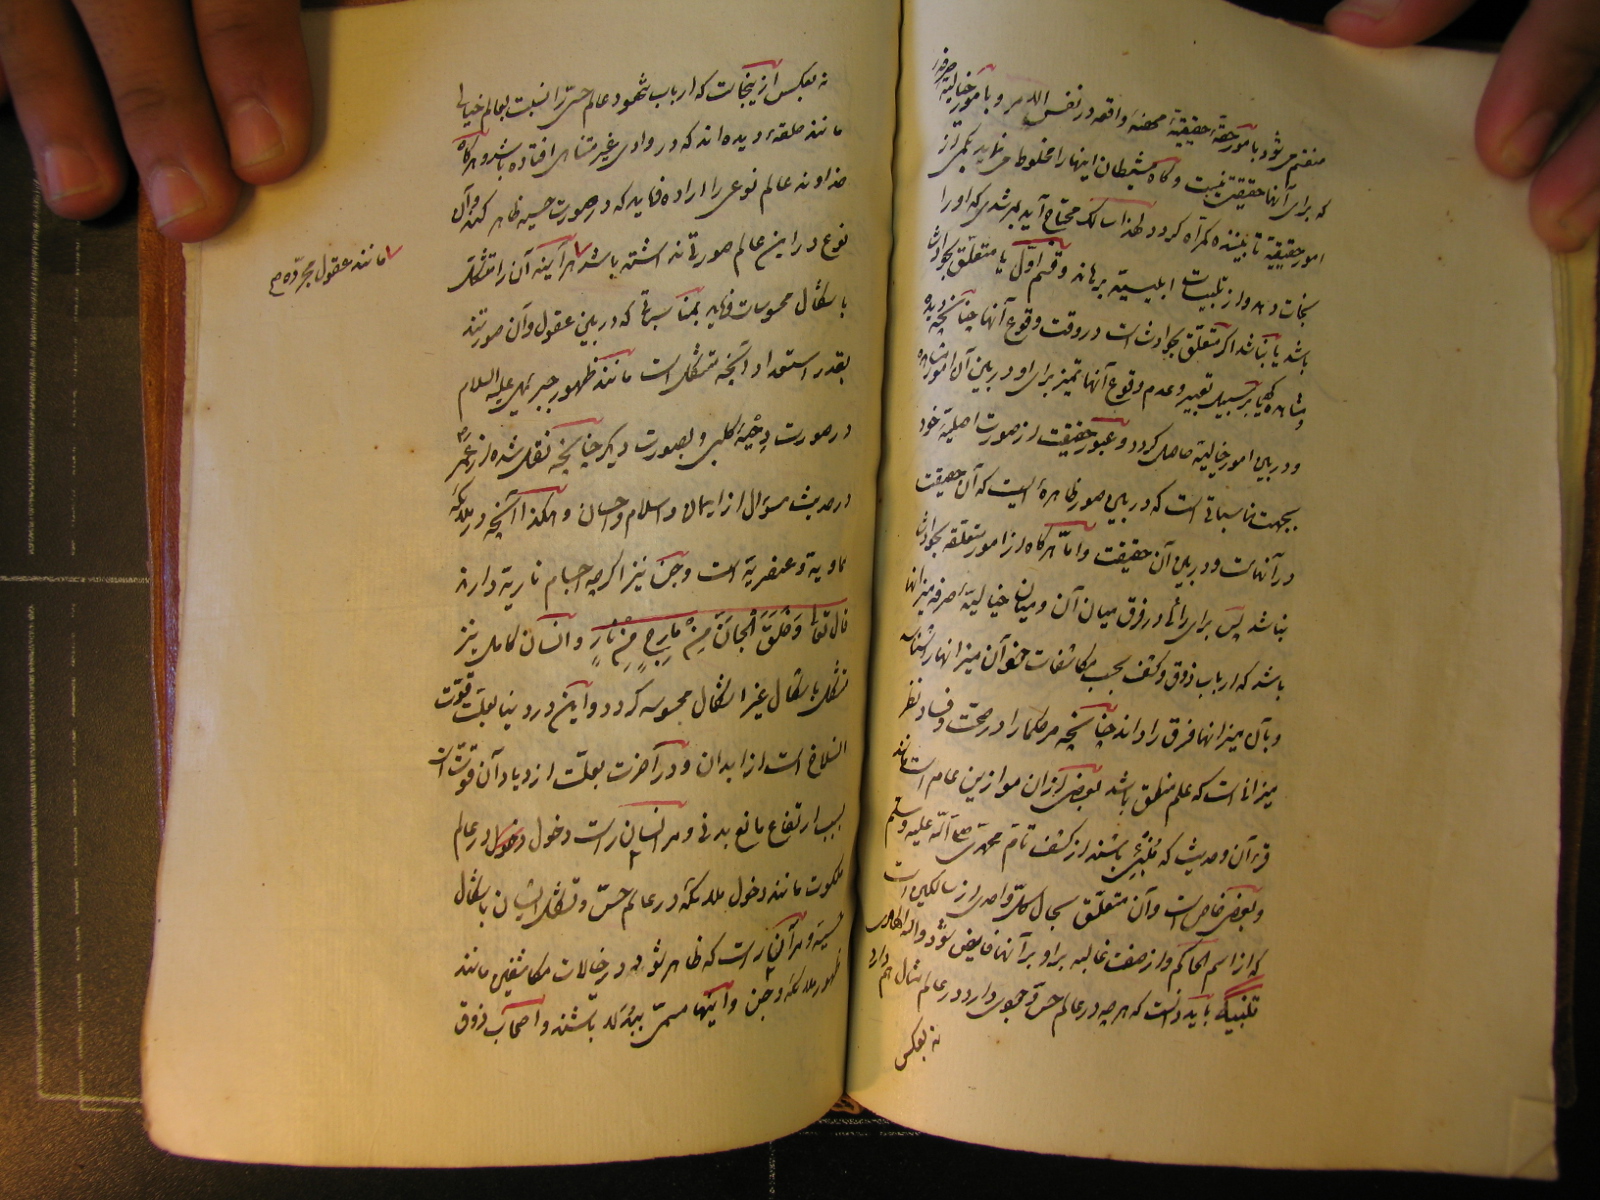 منقسم می شود بامور حقه حقیقیه محضه واقعه در نفس الامر و بامور خیالیه صرفه
که برای آنها حقیقت نیست و گاه شیطان اینها را مخلوط می نماید بکمی از
امور حقیقیه تا بیننده گمراه گردد لهذا سالک محتاج آید بمرشدی که او را
نجات دهد و از تلبیسات ابلیسیه برهاند و قسم اول یا متعلق بحوادث
باشد یا نباشد اگر متعلق بحوادث است در وقت وقوع آنها چنانچه دیده
و مشاهده کرده یا بر سبیل تعبیر و عدم وقوع آنها تمیز برای او در بین آن امور
و در بین امور خیالیه حاصل گردد و عبور حقیقت از صورت اصلیه خود
بجهت مناسباتی است که در بین صور ظاهره ایست که آن حقیقت
در آنهاست و در بین آن حقیقت و اما هرگاه از امور متعلقه بحوادث
نباشد پس برای رائی در فرق میان آن و میان خیالیه صرفه میزانها
باشد که ارباب ذوق و کشف بحسب مکاشفات خود آن میزانها را
و بآن میزانها فرق را داند چنانچه مر حکما را در صحت و فساد نظر
میزانی است که علم منطق باشد بعضی از آن موازین عام است مانند
قرءان و حدیث که مُنْبِئ باشند از کشف تام محمدی صلی الله علیه وسلم
و بعضی خاص است و آن متعلق بحال کل واحدی از سالکین است
که از اسم الحاکم و از صفت غالبه بر او بر آنها فایض شود والله الهادی
تنبیه باید دانست که هر چه در عالم حس وجودی دارد در عالم مثال هم دارد
نه بعکس
نه بعکس از ینجاست که ارباب شهود عالم حسی را نسبت بعالم خیالی
مانند حلقه دیده اند که در وادی غیر متناهی افتاده باشد و هرگاه
خداوند عالم نوعی را اراده فماید که در صورت حسیه ظاهر کند و آن
نوع در این عالم صورتی نداشته باشد هر آینه آن را متشکل
مانند عقول مجرده
باشکال محسوسات فماید بمناسباتی که در بین عقول و آن صورتند
بقدر استعداد آنچه متشکل است مانند ظهور جبرئیل علیه السلام
در صورت دِحْیَه کلبی و بصورت دیگر چنانچه نقل شده از عمر
در حدیث سؤال از ایمان و اسلام و احسان و هکذا آنچه در ملائکه
سماویة و عنصریة است و جن نیز اگرچه اجسام ناریة دارند
قال تعالی وَخَلَقَ الْجَانَّ مِنْ مارِجٍ مِنْ نارٍ و انسان کامل نیز
متشکل باشکال غیر اشکال محسوسه گردد و این در دنیا بعلت قوّت
انسلاخ است از ابدان و در آخرت بعلت ازدیاد آن قوت است
بسبب ارتفاع مانع بدنی و مر انسان راست دخول در عالم
ملکوت مانند دخول ملائکه در عالم حسّ و تشکل ایشان باشکال
حسیه و مر آن راست که ظاهر شود در خیالات مکاشفین مانند
ظهور ملائکه و جن و اینها مسمی ببُدَلا باشند و اصحاب ذوق